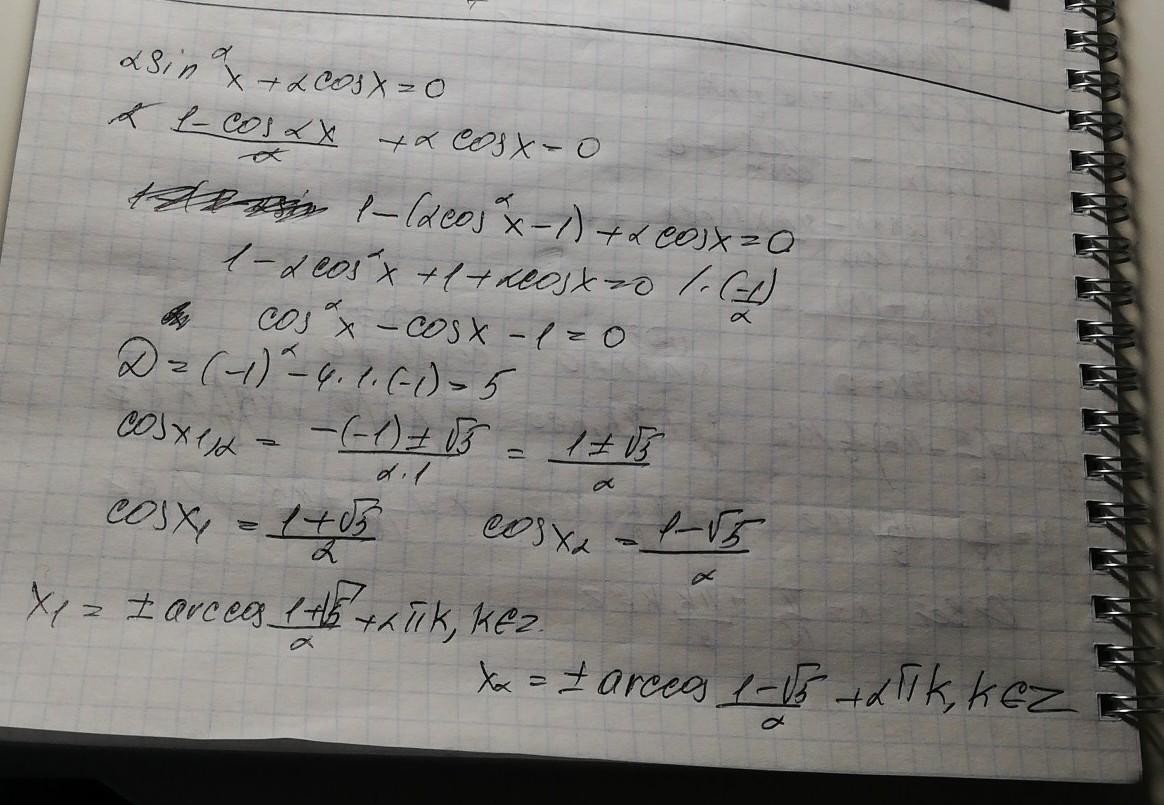 2sin²x + 2cosx = 0
2 (1 - cos2x)/2 + 2cosx = 0
1 - (2cos²x - 1) + 2cosx = 0
1 - 2cos²x + 1 + 2cosx = 0 / · (-1/2)
cos²x - cosx - 1 = 0
D = (-1)² - 4 · 1 · (-1) = 5
cosx₁,₂ = (-(-1) ± √5)/(2 · 1) = (1 ± √5)/2
cosx₁ = (1 + √5)/2 cosx₂ = (1 - √5)/2
x₁ = ± arccos (1 + √5)/2 + 2πk, k∈z.
x₂ = ± arccos (1 - √5)/2 + 2πk, k∈Z